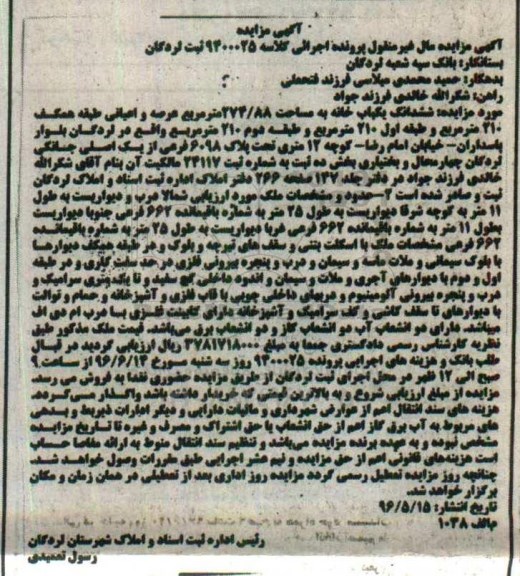 آگهی مزایده
آگهی مزایده مال غیر منقول پرونده اجرائی کلاسه ۹۴۰۰۰۲۵ ثبت لردگان
بستانکار: بانک سپه شعبه لردگان
بدهکار: حمید محمدی میلاسی فرزند فتحعلی
راهن: شکرالله خالدی فرزند جواد
مورد مزایده: ششدانگ یکباب خانه به مساحت ۲۷۴/۸۸ مترمربع عرصه و اعیانی طبقه همکف
۲۱۰ مترمربع و طبقه اول ۲۱۰ مترمربع و طبقه دوم ۲۱۰ مترمربع واقع در لردگان بلوار
پاسداران- خیابان امام رضا- کوچه ۱۲ متری تحت پلاک ۶۰۹۸ فرعی از یک اصلی جمانگی
لردگان چهارمحال و بختیاری بخش ده ثبت به شماره ثبت ۲۴۱۱۷ مالکیت آن بنام آقای شکرالله
خالدی فرزند جواد در دفتر جلد ۱۴۷ صفحه ۲۶۶ دفتر املاک اداره ثبت اسناد و املاک لردگان
ثبت و صادر شده است ۲-حدود و مشخصات ملک مورد ارزیابی شمالا درب و دیواریست به طول
۱۱ متر به کوچه شرقا دیواریست به طول ۲۵ متر به شماره باقیمانده ۶۶۲ فرعی جنوبا دیواریست
بطول ۱۱ متر به شماره باقیمانده ۶۶۲ فرعی غربا دیواریست به طول ۲۵ متر به شماره باقیمانده
۶۶۲ فرعی مشخصات ملک با اسکلت بتنی و سقف های تیرچه و بلوک و در طبقه همکف دیوارها
با بلوک سیمانی و ملات ماسه و سیمان و درب و پنجره بیرونی فلزی در حد سفت کاری و در طبقه
اول و دوم با دیوارهای آجری و ملات و سیمان و اندود داخلی گچ سفید و تا یک متری سرامیک و
درب و پنجره بیرونی آلومینیوم و دربهای داخلی چوبی با قاب فلزی و آشپزخانه و حمام و توالت
با دیوارهای تا سقف کاشی و کف سرامیک و آشپزخانه دارای کابینت فلزی با درب ام دی اف
میباشد. دارای دو انشعاب آب دو انشعاب گاز و دو انشعاب برق می‌باشد. قیمت ملک مذکور طبق
نظریه کارشناس رسمی دادگستری جمعا به مبلغ ۳۷۸۱۷۱۸۰۰۰ ریال ارزیابی گردید در قبال
طلب بانک و هزینه های اجرایی پرونده ۹۴۰۰۰۲۵ روز سه شنبه مورخ ۹۶/۶/۱۴ از ساعت ۹
صبح الی ۱۲ ظهر در محل اجرای ثبت لردگان از طریق مزایده حضوری نقدا به فروش می رسد.
مزایده از مبلغ ارزیابی شروع و به بالاترین قیمتی که خریدار داشته باشد واگذار می‌گردد.
هزینه های سند انتقال اعم از عوارض شهرداری و مالیات دارایی و دیگر ادارات ذیربط و بدهی
های مربوط به آب برق گاز اعم از حق انشعاب یا حق اشتراک و مصرف و غیره تا تاریخ مزایده
مشخص نبوده و به عهده برنده مزایده می‌باشد و تنظیم سند انتقال منوط به ارائه مفاصا حساب
است هزینه‌های قانونی اعم از حق مزایده و نیم عشر اجرایی طبق مقررات وصول خواهد شد.
چنانچه روز مزایده تعطیل رسمی گردد مزایده روز اداری بعد از تعطیلی در همان زمان و مکان
برگزار خواهد شد.
تاریخ انتشار: ۹۶/۵/۱۵
م/الف ۱۰۳۸
رئیس اداره ثبت اسناد و املاک شهرستان لردگان
رسول تعمیدی